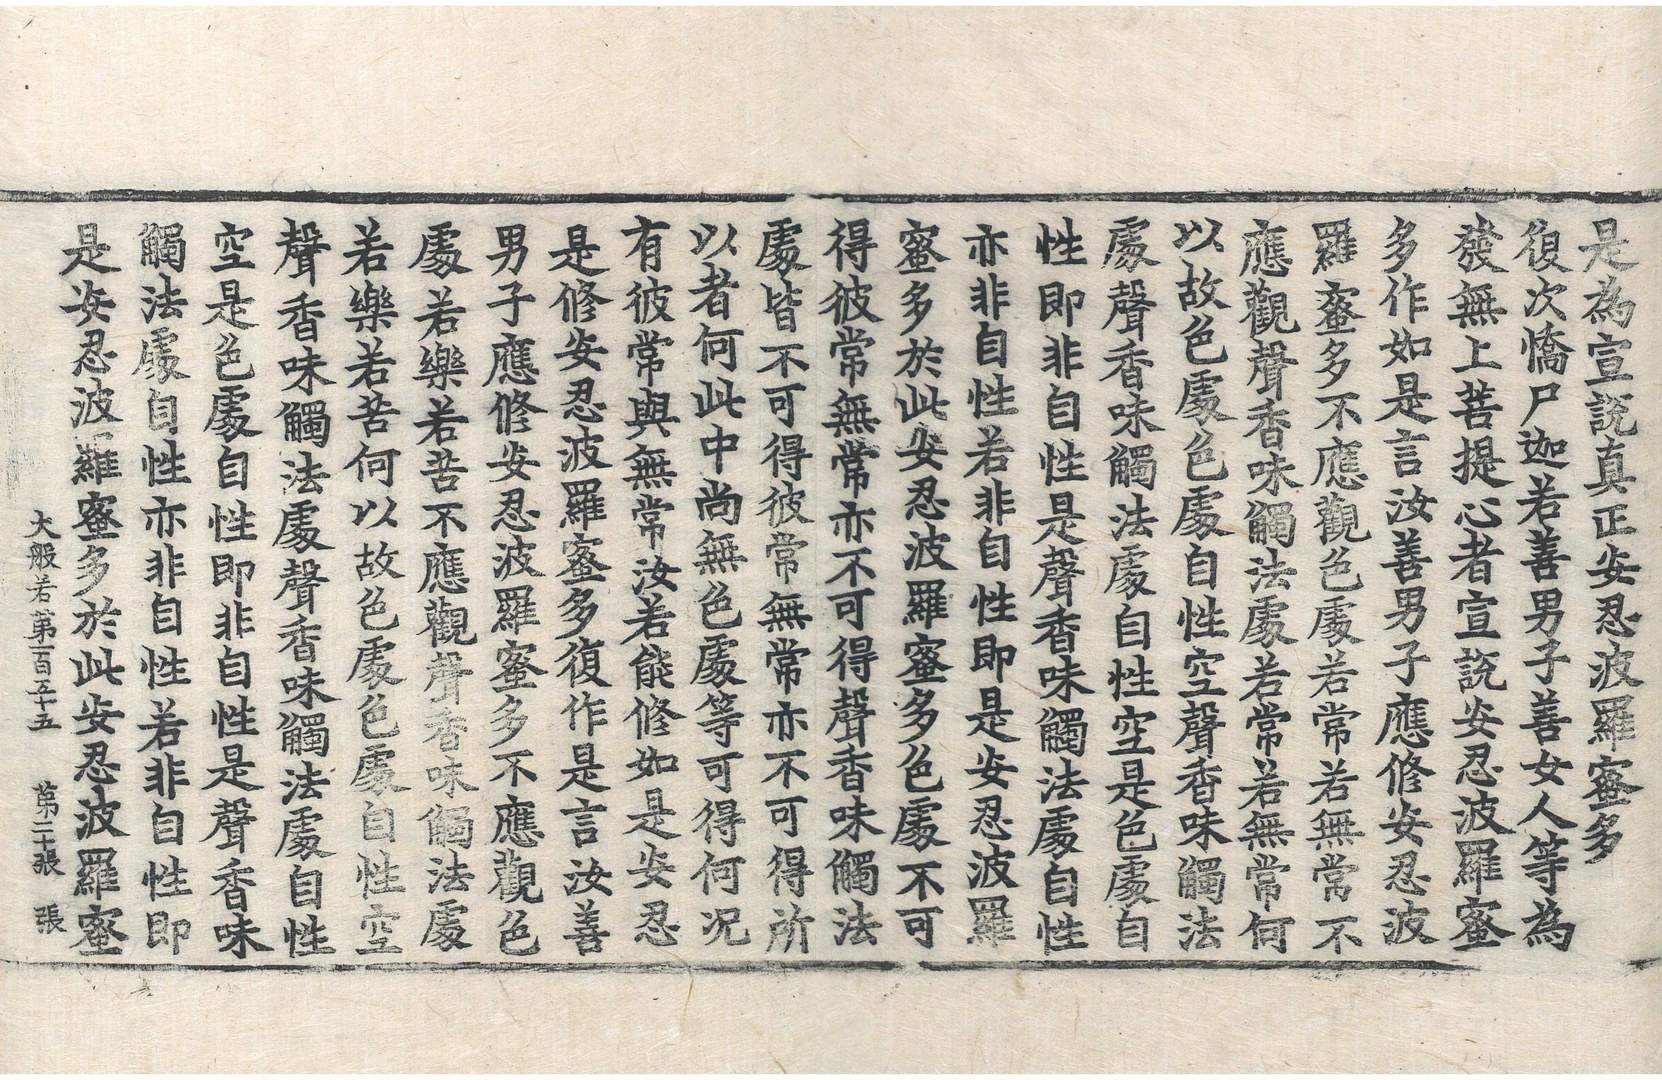 是為宣說真正安忍波羅蜜多
復次憍尸迦若善男子善女人等為
發無上菩提心者宣說安忍波羅蜜
多作如是言汝善男子應修安忍波
羅蜜多不應觀色處若常若無常不
應觀聲香味觸法處若常若無常何
以故色處色處自性空聲香味觸法
處聲香味觸法處自性空是色處自
性即非自性是聲香味觸法處自性
亦非自性若非自性即是安忍波羅
蜜多於此安忍波羅蜜多色處不可
得彼常無常亦不可得聲香味觸法
處皆不可得彼常無常亦不可得所
以者何此中尚無色處等可得何況
有彼常與無常汝若能修如是安忍
是修安忍波羅蜜多復作是言汝善
男子應修安忍波羅蜜多不應觀色
處若樂若苦不應觀聲香味觸法處
若樂若苦何以故色處色處自性空
聲香味觸法處聲香味觸法處自性
空是色處自性即非自性是聲香味
觸法處自性亦非自性若非自性即
是安忍波羅蜜多於此安忍波羅蜜
大般若第一百五十五 第二十張 張